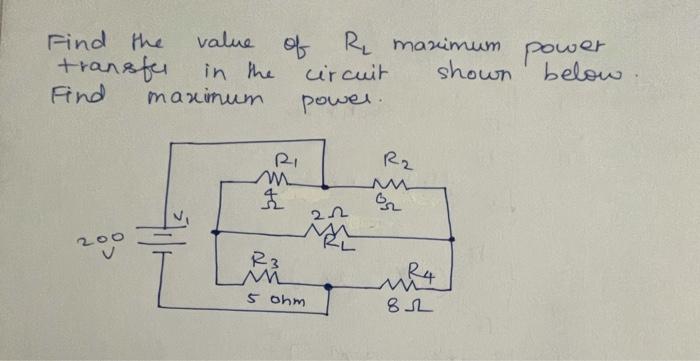 Find the value of RL maximum power
transfer in the circuit shown below.
Find maximum power.
R1
R2
4
Ω
6Ω
V1
2Ω
RL
200
V
R3
R4
5 ohm
8Ω